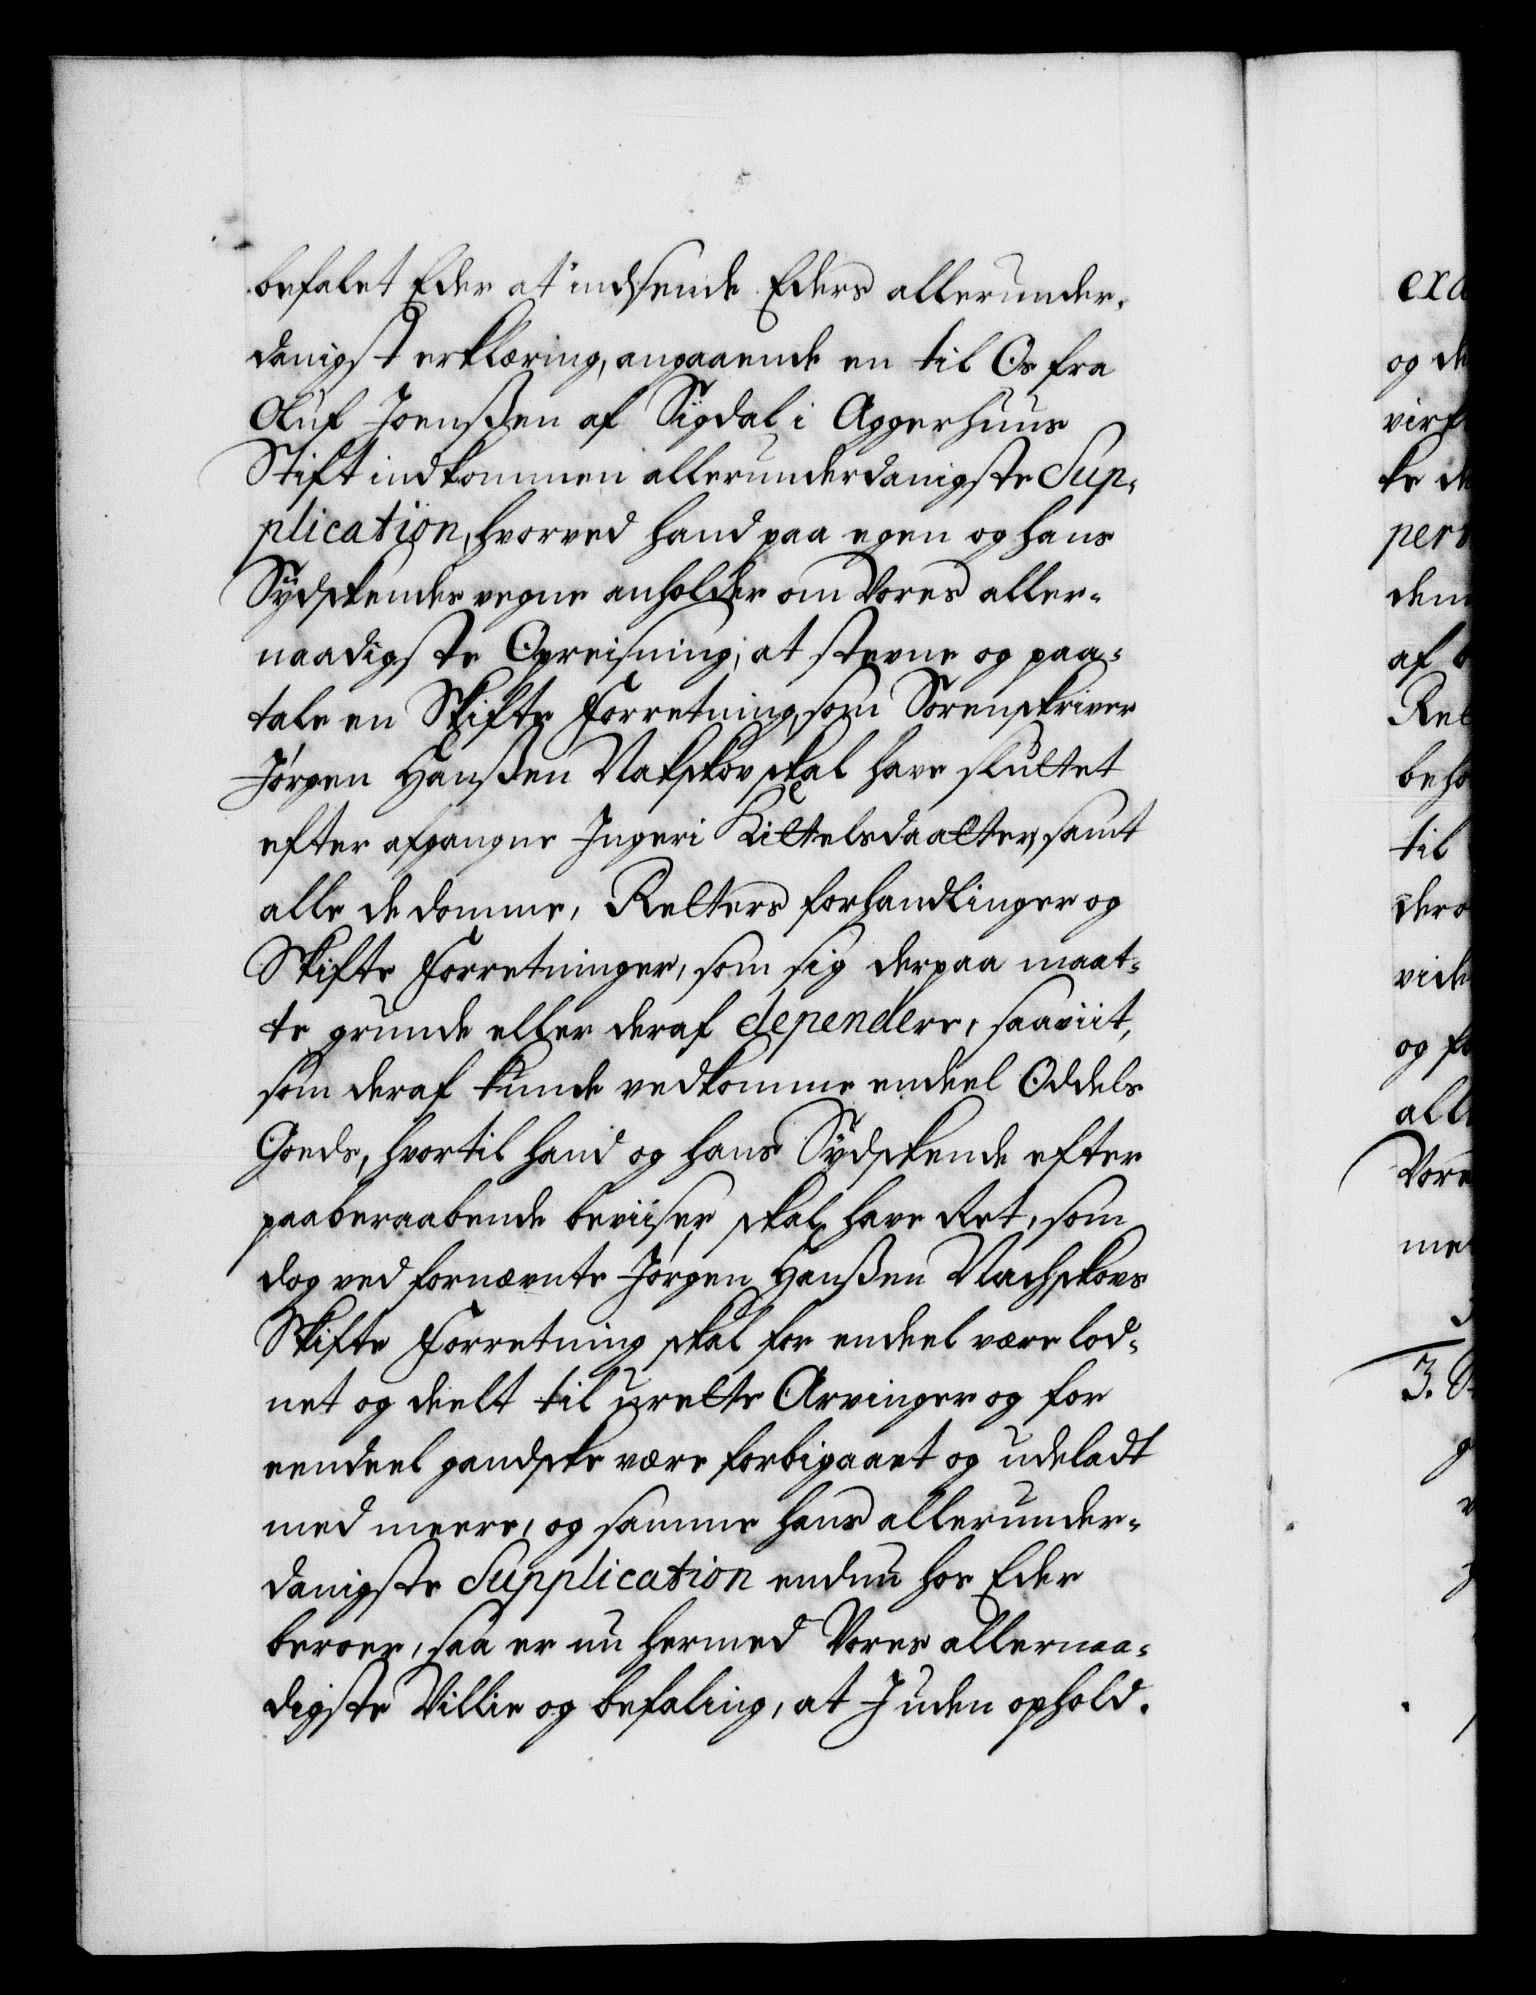 befalet Eder at indsende Eders allerunder-
danigst erklæring, angaaende en til Os fra
Oluf Joenßen af Sigdal i Aggerhuus
Stift indkommen allerunderdanigste Sup-
plication, hvorved hand paa egen og hans
Sydskendes vegne anholder om Vores aller-
naadigste Opreisning, at stevne og paa-
tale en Skifte Forretning, som Sorenskriver
Jørgen Hanßen Nakskov skal have sluttet
efter afgangne Ingeri Kittelsdaatter, samt
alle de domme, Retters forhandlinger og
Skifte Forretninger, som sig derpaa maat-
te grunde eller deraf dependere, saaviit,
som deraf kunde vedkomme endeel Oddels
Goeds, hvortil hand og hans Sydskende efter
paaberaabende beviiser skal have Ret, som
dog ved fornævnte Jørgen Hanßen Nachskovs
Skifte Forretning skal for endeel være lod-
net og deelt til urette Arvinger og for
eendeel gandske være forbigaaet og udeladt
med meere, og samme hans allerunder-
danigste Supplication endnu hos Eder
beroer, saa er nu hermed Vores allernaa-
digste Villie og befaling, at I uden ophold.
exa
og de
virk
ke de
pers
den
af
Ret
beho
til
dero
vide
og fo
alle
Vore
me
3.